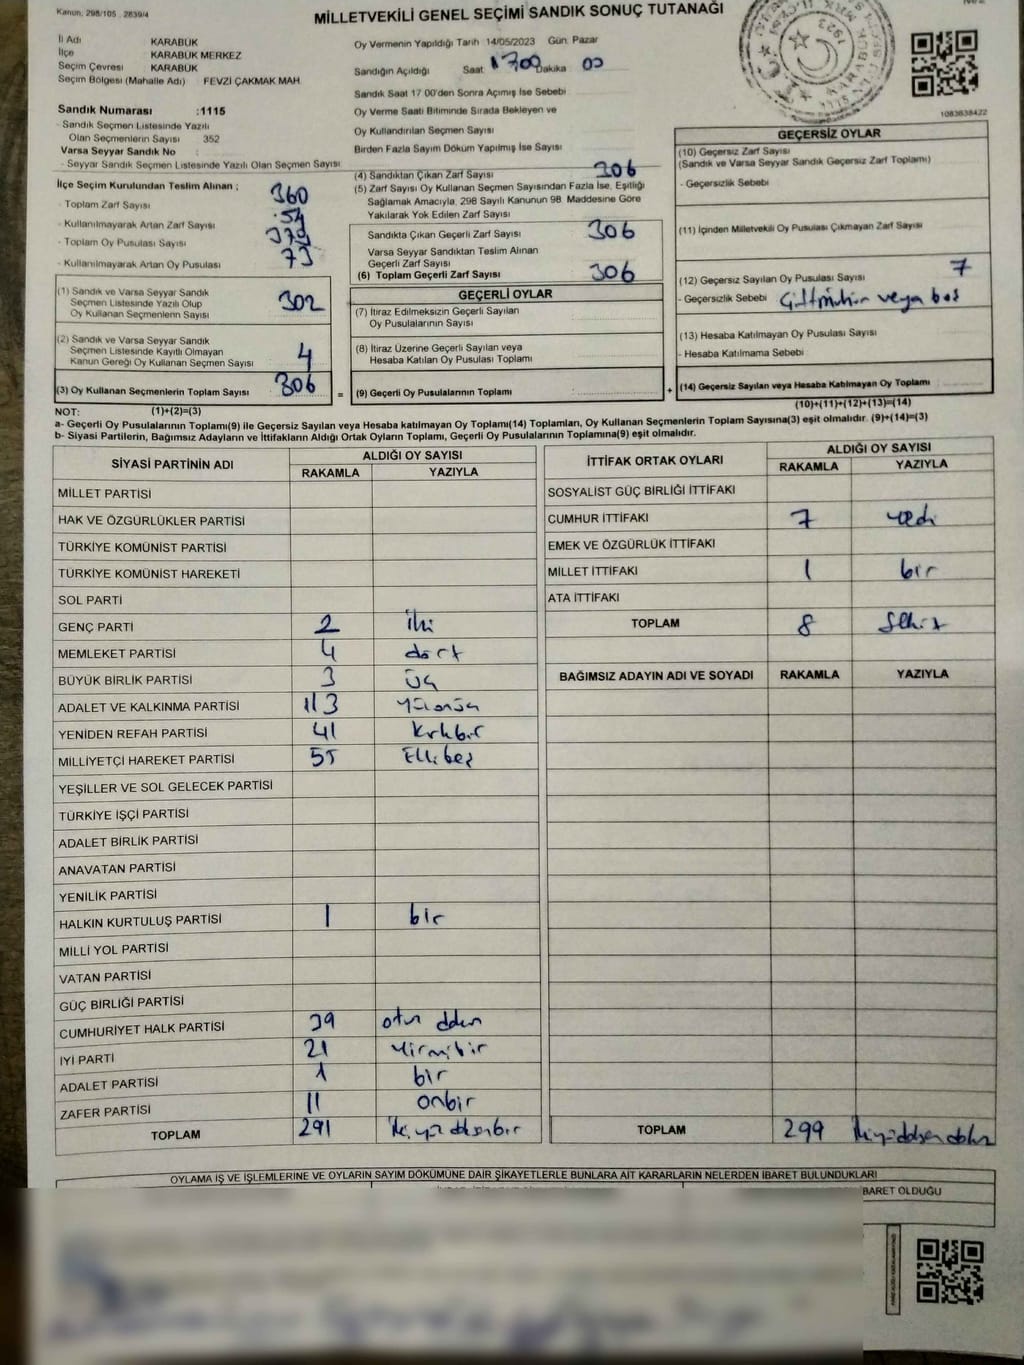 Kanun. 298/105 . 2839/4
MİLLETVEKİLİ GENEL SEÇİMİ SANDIK SONUÇ TUTANAĞI
İl Adı KARABÜK
İlçe KARABÜK MERKEZ
Seçim Çevresi KARABÜK
Seçim Bölgesi (Mahalle Adı) FEVZİ ÇAKMAK MAH.
Sandık Numarası :1115
Sandık Seçmen Listesinde Yazılı
Olan Seçmenlerin Sayısı 352
Varsa Seyyar Sandık No :
Seyyar Sandık Seçmen Listesinde Yazılı Olan Seçmen Sayısı
Oy Vermenin Yapıldığı Tarih 14/05/2023 Gün: Pazar
Sandığın Açıldığı Saat 1700 Dakika 00
Sandık Saat 17.00'den Sonra Açımış İse Sebebi
Oy Verme Saati Bitiminde Sırada Bekleyen ve
Oy Kullandırılan Seçmen Sayısı
Birden Fazla Sayım Döküm Yapılmış İse Sayısı
1083638422
İlçe Seçim Kurulundan Teslim Alınan ;
- Toplam Zarf Sayısı 360
- Kullanılmayarak Artan Zarf Sayısı 54
- Toplam Oy Pusulası Sayısı 379
- Kullanılmayarak Artan Oy Pusulası 73
(1) Sandık ve Varsa Seyyar Sandık
Seçmen Listesinde Yazılı Olup
Oy Kullanan Seçmenlerin Sayısı 302
(2) Sandık ve Varsa Seyyar Sandık
Seçmen Listesinde Kayıtlı Olmayan
Kanun Gereği Oy Kullanan Seçmen Sayısı 4
(3) Oy Kullanan Seçmenlerin Toplam Sayısı 306 =
(1)+(2)=(3)
(4) Sandıktan Çıkan Zarf Sayısı 306
(5) Zarf Sayısı Oy Kullanan Seçmen Sayısından Fazla İse, Eşitliği
Sağlamak Amacıyla, 298 Sayılı Kanunun 98. Maddesine Göre
Yakılarak Yok Edilen Zarf Sayısı
Sandıkta Çıkan Geçerli Zarf Sayısı 306
Varsa Seyyar Sandıktan Teslim Alınan
Geçerli Zarf Sayısı
(6) Toplam Geçerli Zarf Sayısı 306
GEÇERLİ OYLAR
(7) İtiraz Edilmeksizin Geçerli Sayılan
Oy Pusulalarının Sayısı
(8) İtiraz Üzerine Geçerli Sayılan veya
Hesaba Katılan Oy Pusulası Toplamı
(9) Geçerli Oy Pusulalarının Toplamı +
GEÇERSİZ OYLAR
(10) Geçersiz Zarf Sayısı
(Sandık ve Varsa Seyyar Sandık Geçersiz Zarf Toplamı)
- Geçersizlik Sebebi
(11) İçinden Milletvekili Oy Pusulası Çıkmayan Zarf Sayısı
(12) Geçersiz Sayılan Oy Pusulası Sayısı 7
- Geçersizlik Sebebi Çift mühür veya boş
(13) Hesaba Katılmayan Oy Pusulası Sayısı
- Hesaba Katılmama Sebebi
(14) Geçersiz Sayılan veya Hesaba Katılmayan Oy Toplamı
(10)+(11)+(12)+(13)=(14)
NOT:
a- Geçerli Oy Pusulalarının Toplamı(9) ile Geçersiz Sayılan veya Hesaba katılmayan Oy Toplamı(14) Toplamları, Oy Kullanan Seçmenlerin Toplam Sayısına(3) eşit olmalıdır. (9)+(14)=(3)
b- Siyasi Partilerin, Bağımsız Adayların ve İttifakların Aldığı Ortak Oyların Toplamı, Geçerli Oy Pusulalarının Toplamına(9) eşit olmalıdır.
SİYASİ PARTİNİN ADI ALDIĞI OY SAYISI
RAKAMLA YAZIYLA
MİLLET PARTİSİ
HAK VE ÖZGÜRLÜKLER PARTİSİ
TÜRKİYE KOMÜNİST PARTİSİ
TÜRKİYE KOMÜNİST HAREKETİ
SOL PARTİ
GENÇ PARTİ 2 iki
MEMLEKET PARTİSİ 4 dört
BÜYÜK BİRLİK PARTİSİ 3 üç
ADALET VE KALKINMA PARTİSİ 113
YENİDEN REFAH PARTİSİ 41 kırkbir
MİLLİYETÇİ HAREKET PARTİSİ 55 Ellibeş
YEŞİLLER VE SOL GELECEK PARTİSİ
TÜRKİYE İŞÇİ PARTİSİ
ADALET BİRLİK PARTİSİ
ANAVATAN PARTİSİ
YENİLİK PARTİSİ
HALKIN KURTULUŞ PARTİSİ 1 bir
MİLLİ YOL PARTİSİ
VATAN PARTİSİ
GÜÇ BİRLİĞİ PARTİSİ
CUMHURİYET HALK PARTİSİ 39 otuz dokuz
İYİ PARTİ 21 yirmibir
ADALET PARTİSİ 1 bir
ZAFER PARTİSİ 11 onbir
TOPLAM 291 iki yüz doksanbir
İTTİFAK ORTAK OYLARI ALDIĞI OY SAYISI
RAKAMLA YAZIYLA
SOSYALİST GÜÇ BİRLİĞİ İTTİFAKI
CUMHUR İTTİFAKI 7 yedi
EMEK VE ÖZGÜRLÜK İTTİFAKI
MİLLET İTTİFAKI 1 bir
ATA İTTİFAKI
TOPLAM 8 sekiz
BAĞIMSIZ ADAYIN ADI VE SOYADI RAKAMLA YAZIYLA
TOPLAM 299 ikiyüzdoksandokuz
OYLAMA İŞ VE İŞLEMLERİNE VE OYLARIN SAYIM DÖKÜMÜNE DAİR ŞİKAYETLERLE BUNLARA AİT KARARLARIN NELERDEN İBARET BULUNDUKLARI
BARET OLDUĞU